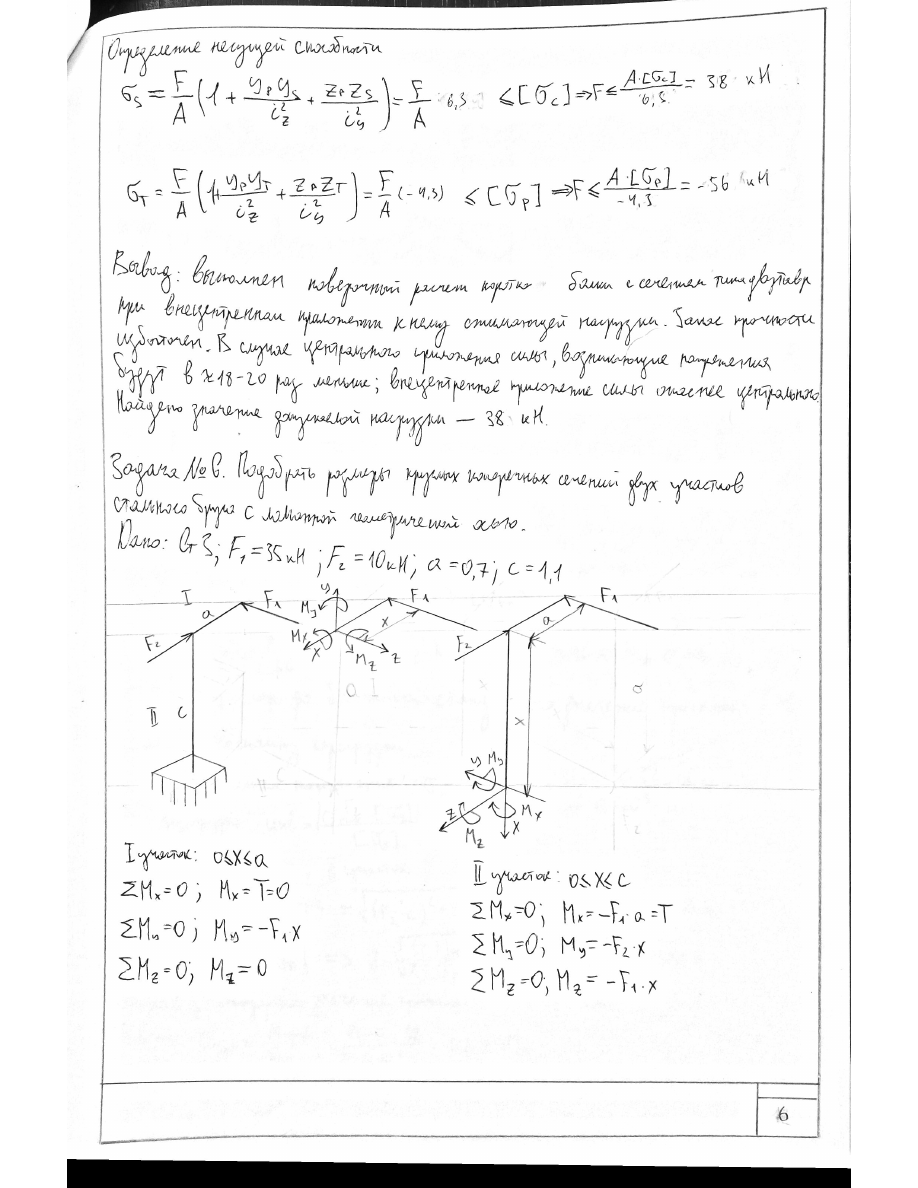 Определение несущей способности
σS = F/A (1 + yP yS / i²z + zP zS / i²y) = F/A · 6,3 ≤ [σc] ⇒ F ≤ A·[σc] / 6,3 = 38 кН
σT = F/A (1 + yP yT / i²z + zP zT / i²y) = F/A (-4,3) ≤ [σp] ⇒ F ≤ A·[σp] / -4,3 = -56 кН
Вывод: выполнен поверочный расчет коротко балки с сечением типа двутавр
при внецентренном приложении к нему сжимающей нагрузки. Запас прочности
избыточен. В случае центрального приложения силы, возникающие напряжения
будут в ≈18-20 раз меньше; внецентренное приложение силы опаснее центрального.
Найдено значение допускаемой нагрузки — 38 кН.
Задача №6. Подобрать размеры круглых поперечных сечений двух участков
стального бруса с ломанной геометрической осью.
Дано: Ст 3; F1 = 35 кН; F2 = 10 кН; a = 0,7; c = 1,1
I a F1 F2 II c
y My F1 Mx x x Mz z
F1 F2 a x y My z Mz Mx x
I участок: 0≤x≤a
ΣMx=0; Mx=T=0
ΣMy=0; My=-F1x
ΣMz=0; Mz=0
II участок: 0≤x≤c
ΣMx=0; Mx=-F1·a=T
ΣMy=0; My=-F2·x
ΣMz=0; Mz=-F1·x
6